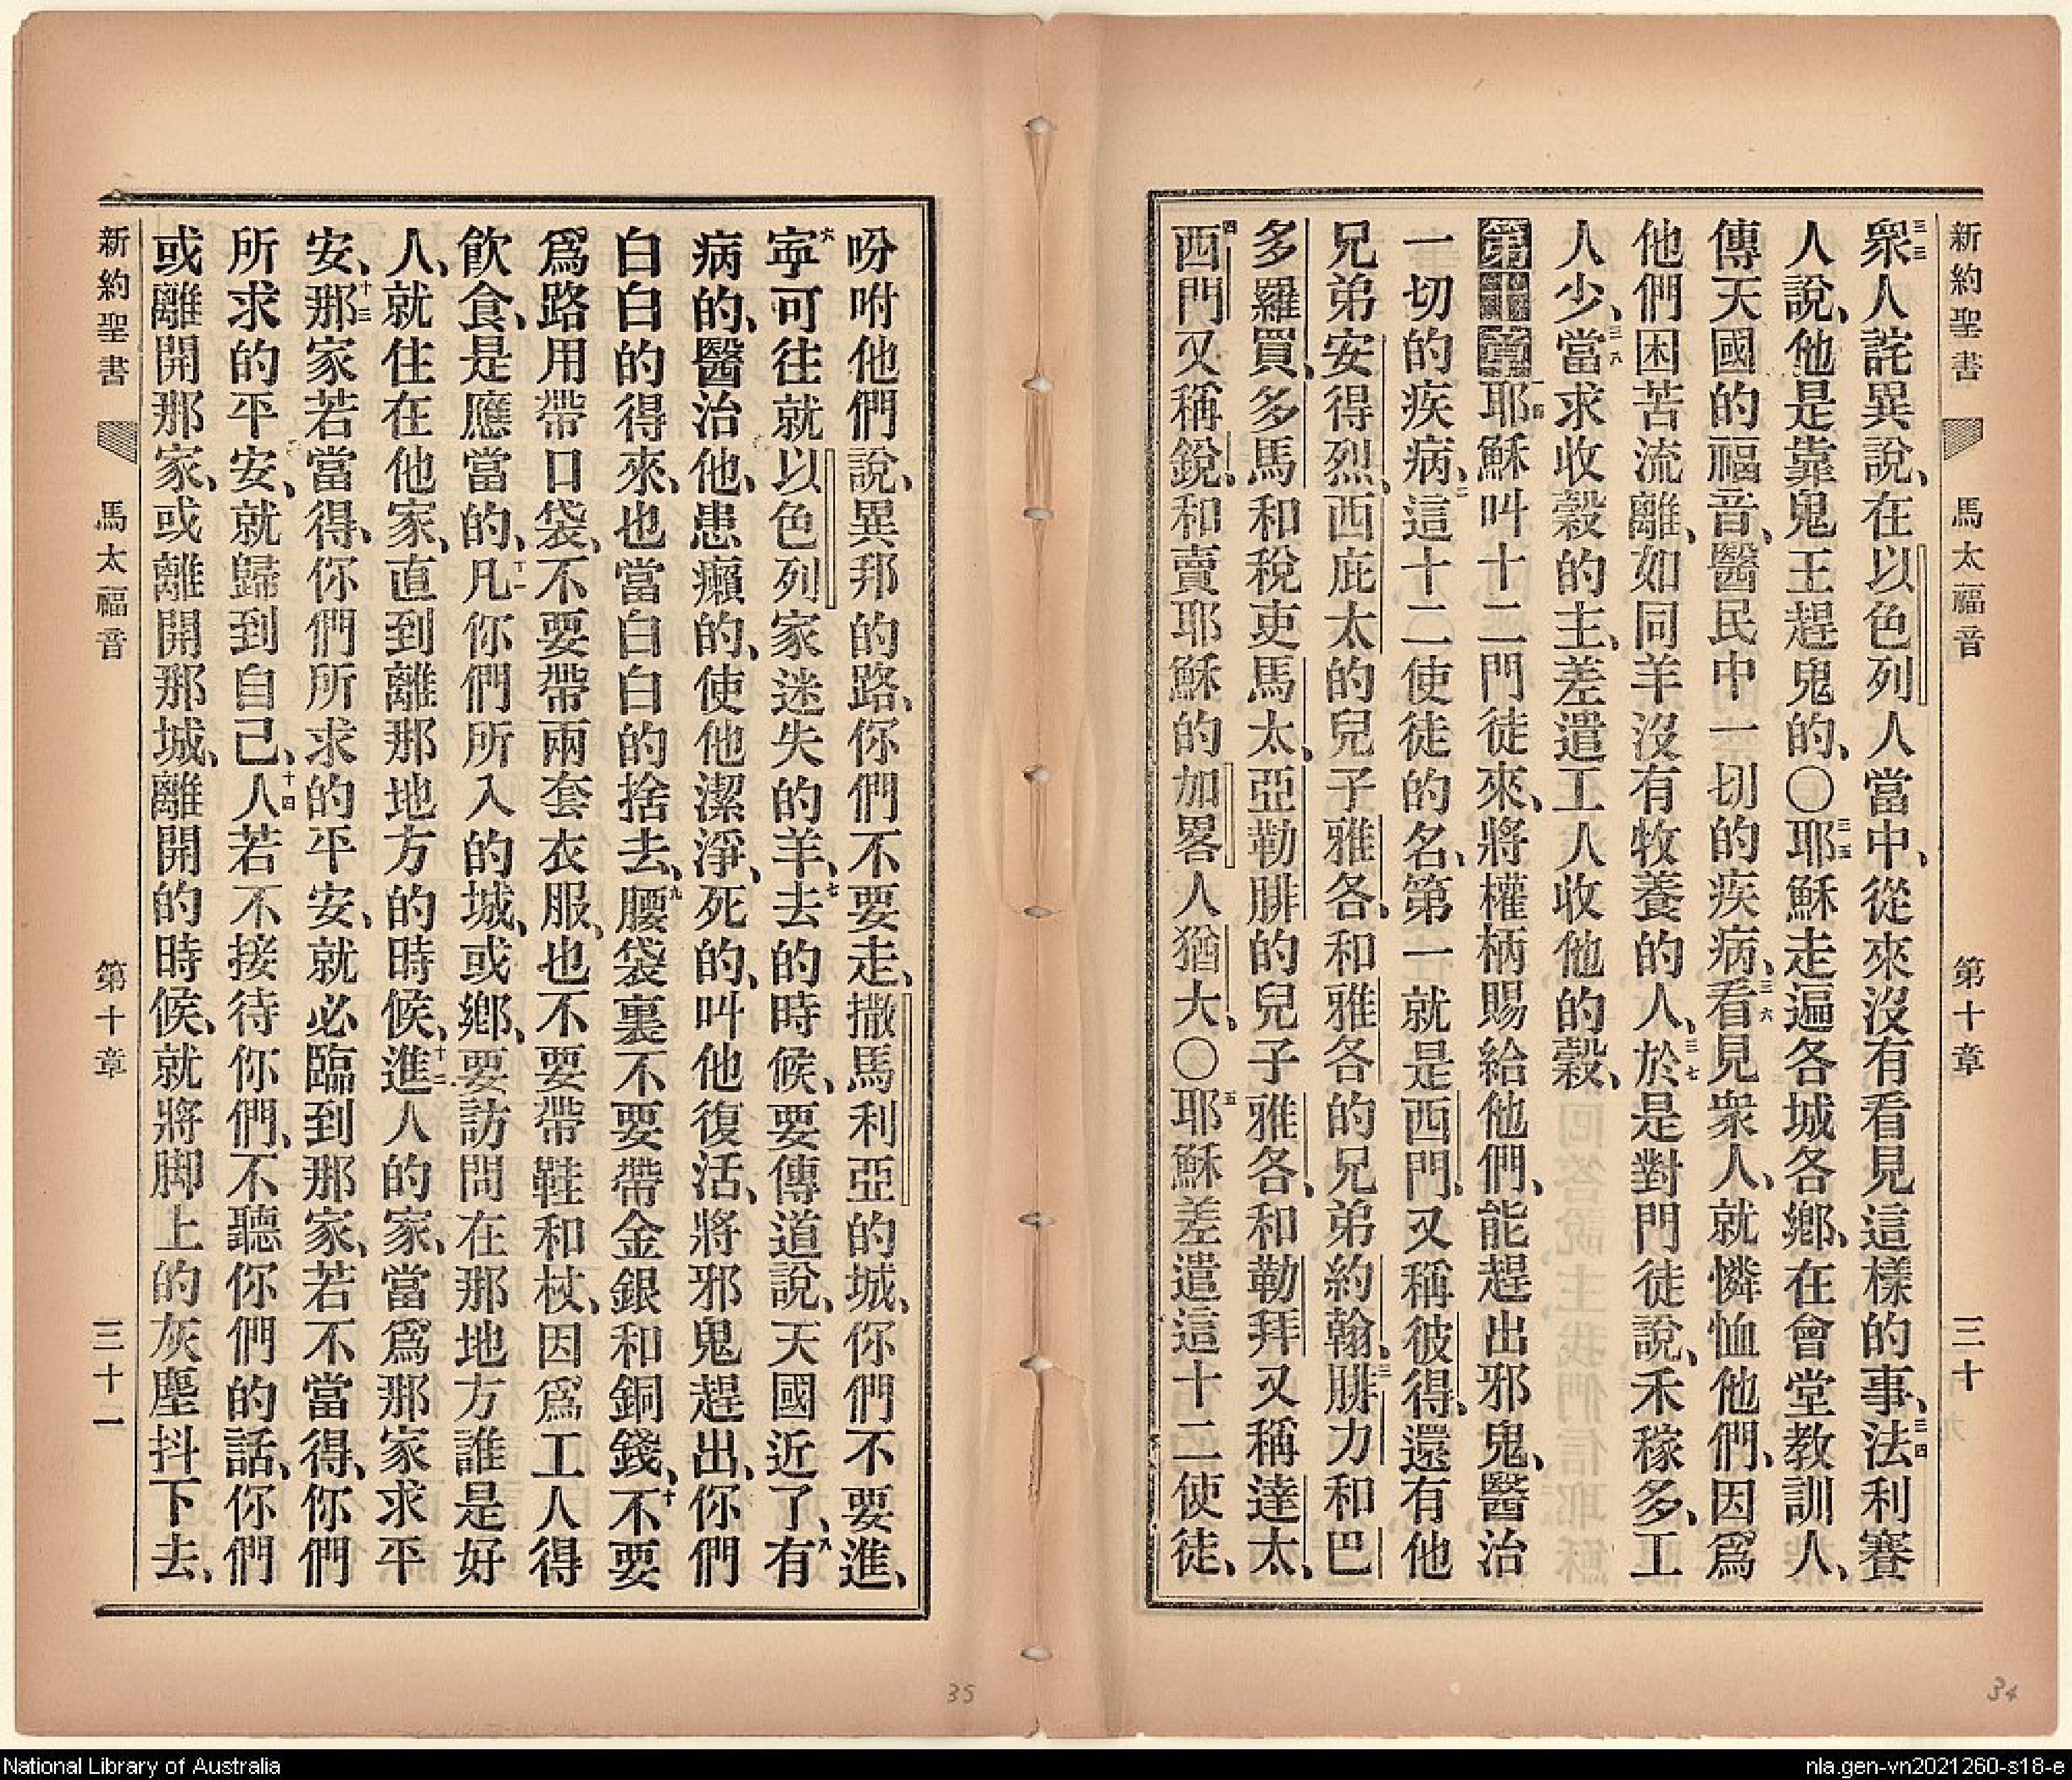 新約聖書 馬太福音 第十章 三十
三三衆人詫異說、在以色列人當中、從來沒有看見這樣的事、三四法利賽
人說、他是靠鬼王趕鬼的、〇三五耶穌走遍各城各鄉、在會堂教訓人、
傳天國的福音、醫民中一切的疾病、三六看見衆人、就憐恤他們、因爲
他們困苦流離、如同羊沒有牧養的人、三七於是對門徒說、禾稼多、工
人少、三八當求收穀的主、差遣工人收他的穀、
第十章一耶穌叫十二門徒來、將權柄賜給他們、能趕出邪鬼、醫治
一切的疾病、二這十二使徒的名、第一就是西門、又稱彼得、還有他
兄弟安得烈、西庇太的兒子雅各、和雅各的兄弟約翰、三腓力和巴
多羅買、多馬和稅吏馬太、亞勒腓的兒子雅各、和勒拜又稱達太、
四西門又稱銳、和賣耶穌的加畧人猶大、〇五耶穌差遣這十二使徒、
吩咐他們說、異邦的路、你們不要走、撒馬利亞的城、你們不要進、
六寧可往就以色列家迷失的羊、七去的時候、要傳道說、天國近了、八有
病的、醫治他、患癩的、使他潔淨、死的、叫他復活、將邪鬼趕出、你們
白白的得來、也當白白的捨去、九腰袋裏不要帶金銀和銅錢、十不要
爲路用帶口袋、不要帶兩套衣服、也不要帶鞋和杖、因爲工人得
飲食、是應當的、十一凡你們所入的城、或鄉、要訪問在那地方誰是好
人、就住在他家、直到離那地方的時候、十二進人的家、當爲那家求平
安、十三那家若當得、你們所求的平安、就必臨到那家、若不當得、你們
所求的平安、就歸到自己、十四人若不接待你們、不聽你們的話、你們
或離開那家、或離開那城、離開的時候、就將脚上的灰塵抖下去、
新約聖書 馬太福音 第十章 三十一
35
34
National Library of Australia
nla.gen-vn2021260-s18-e